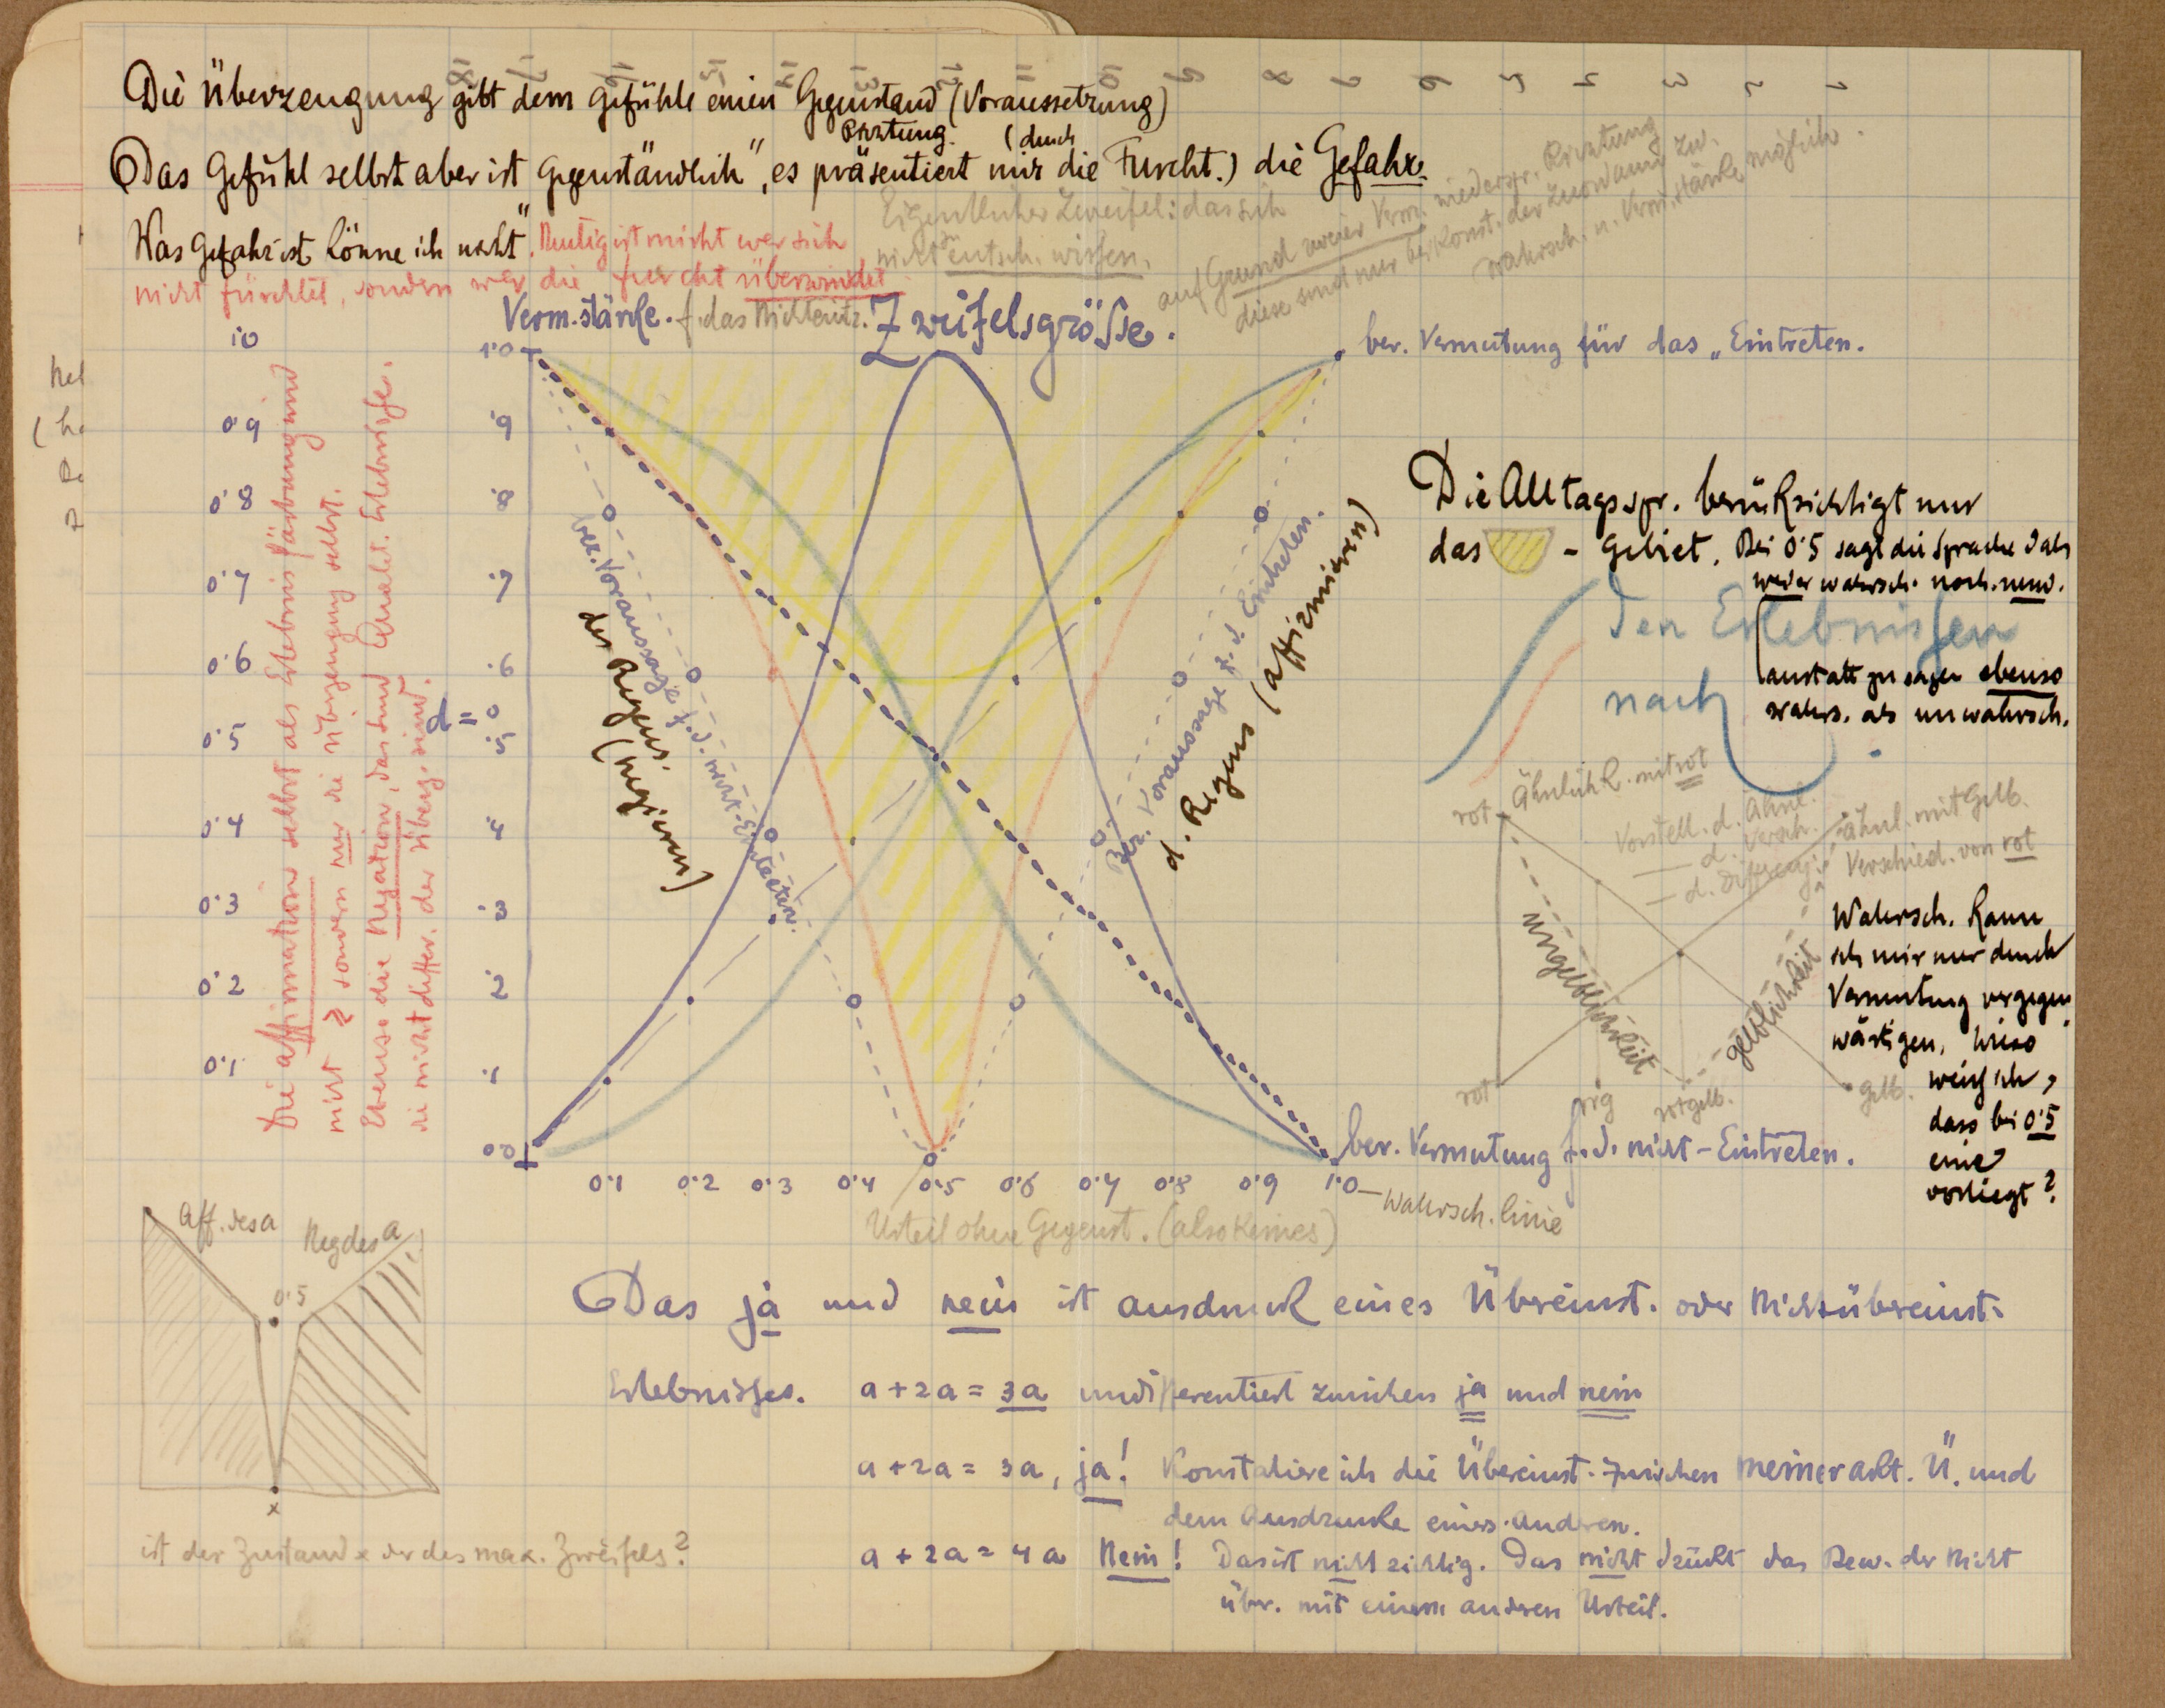 18 17 16 15 14 13 12 11 10 9 8 7 6 5 4 3 2 1
Die Überzeugung gibt dem Gefühle einen Gegenstand (Voraussetzung)
Richtung. (durch
Das Gefühl selbst aber ist „gegenständlich“, es präsentiert mir die Furcht.) die Gefahr.
Was Gefahr ist könne ich nicht.
Mutig ist nicht wer sich
nicht fürchtet, sondern wer die Furcht überwindet
Eigentlicher Zweifel: das sich
nicht entsch. wissen,
auf Grund zweier Verm. niederspr. Richtung
diese sind nur bei Konst. der Zuordnung zw.
Wahrsch. u. Verm.stärke möglich.
Verm.stärke. f. das Nichteintr.
Zweifelsgröße.
ber. Vermutung für das „Eintreten.
1.0
0.9
0.8
0.7
0.6
0.5
0.4
0.3
0.2
0.1
1.0
.9
.8
.7
.6
d = 0
.5
.4
.3
.2
.1
0.0
Die Affirmation selbst als Erlebnisfärbung und
nicht sondern nur die Überzeugung selbst.
Ebenso die Negation, das sind Qualit. Erlebnisse.
die nicht differ. der Überz. sind.
ber. Voraussage f. d. nicht-Eintreten.
des Regens.
(negieren)
Ber. Voraussage f. d. Eintreten.
d. Regens (affirmieren)
Die Alltagsspr. berücksichtigt nur
das - Gebiet. Bei 0.5 sagt die Sprache dass
weder wahrsch. noch. unw.
anstatt zu sagen ebenso
wahrs. als unwahrsch.
den Erlebnissen
nach
rot Ähnlichk. mit rot
Vorstell. d. Ähnl.
— d. Versch.
— d. Differenz
Ähnl. mit Gelb.
Verschied. von rot
ungelblichkeit
gelblichkeit
rot rotgelb. Gelb.
Wahrsch. kann
ich mir nur durch
Vermutung vergegen
wärtigen, wieso
weiß ich,
dass bei 0.5
eine
vorliegt?
ber. Vermutung f. d. nicht-Eintreten.
0.1 0.2 0.3 0.4 0.5 0.6 0.7 0.8 0.9 1.0 — Wahrsch. linie
Urteil ohne Gegenst. (also keines)
Aff. des a
Neg des a
0.5
x
ist der Zustand x der des max. Zweifels?
Das ja und nein ist Ausdruck eines Übereinst. oder Nichtübereinst.
Erlebnisses. a + 2a = 3a undifferentiert zwischen ja und nein
a + 2a = 3a, ja! Konstatiere ich die Übereinst. zwischen meiner akt. Ü. und
dem Ausdrucke eines anderen.
a + 2a = 4a Nein! Das ist nicht richtig. Das nicht drückt das Bew. der Nicht
über. mit einem anderen Urteil.